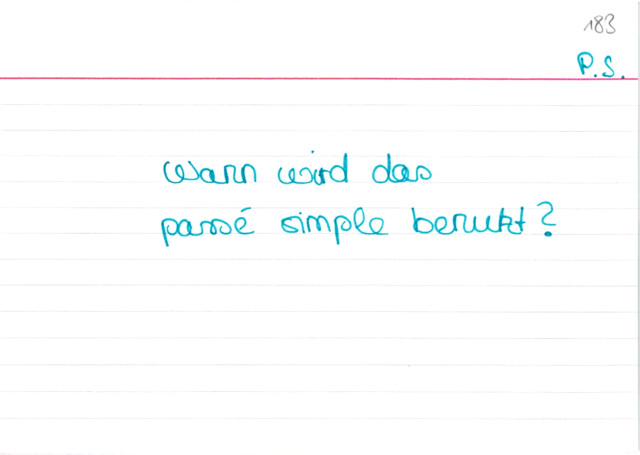 183
P.S.
Wann wird das
passé simple benutzt?